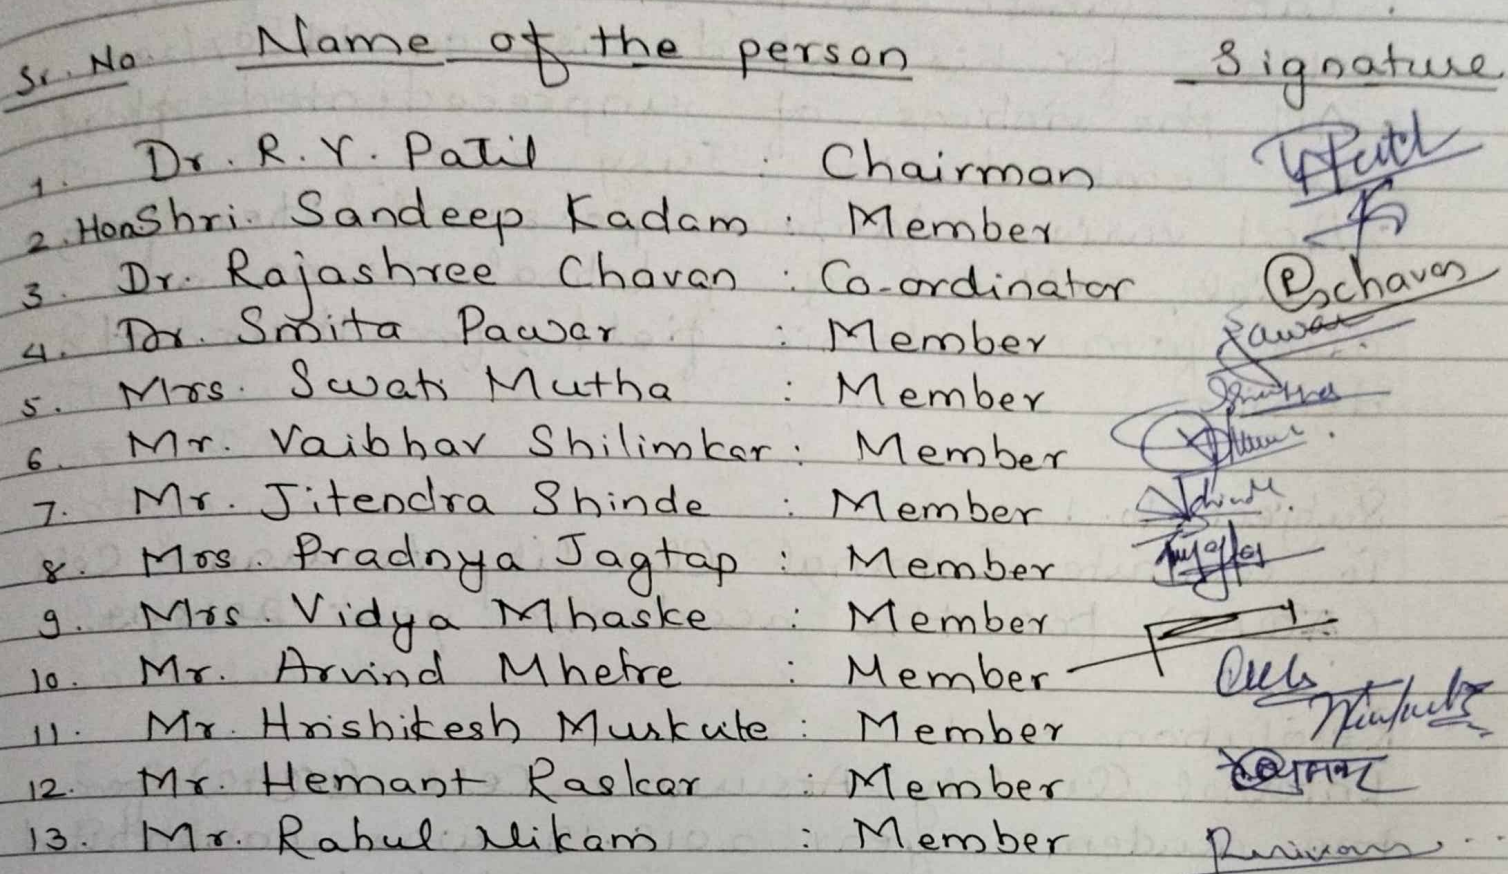 Sr. No. Name of the person Signature
1. Dr. R. Y. Patil : Chairman
2. Hon Shri. Sandeep Kadam : Member
3. Dr. Rajashree Chavan : Co-ordinator Rschavan
4. Dr. Smita Pawar : Member Pawar
5. Mrs. Swati Mutha : Member
6. Mr. Vaibhav Shilimkar : Member
7. Mr. Jitendra Shinde : Member
8. Mrs. Pradnya Jagtap : Member
9. Mrs. Vidya Mhaske : Member
10. Mr. Arvind Mhetre : Member
11. Mr. Hrishikesh Murkute : Member
12. Mr. Hemant Raskar : Member
13. Mr. Rahul Nikam : Member